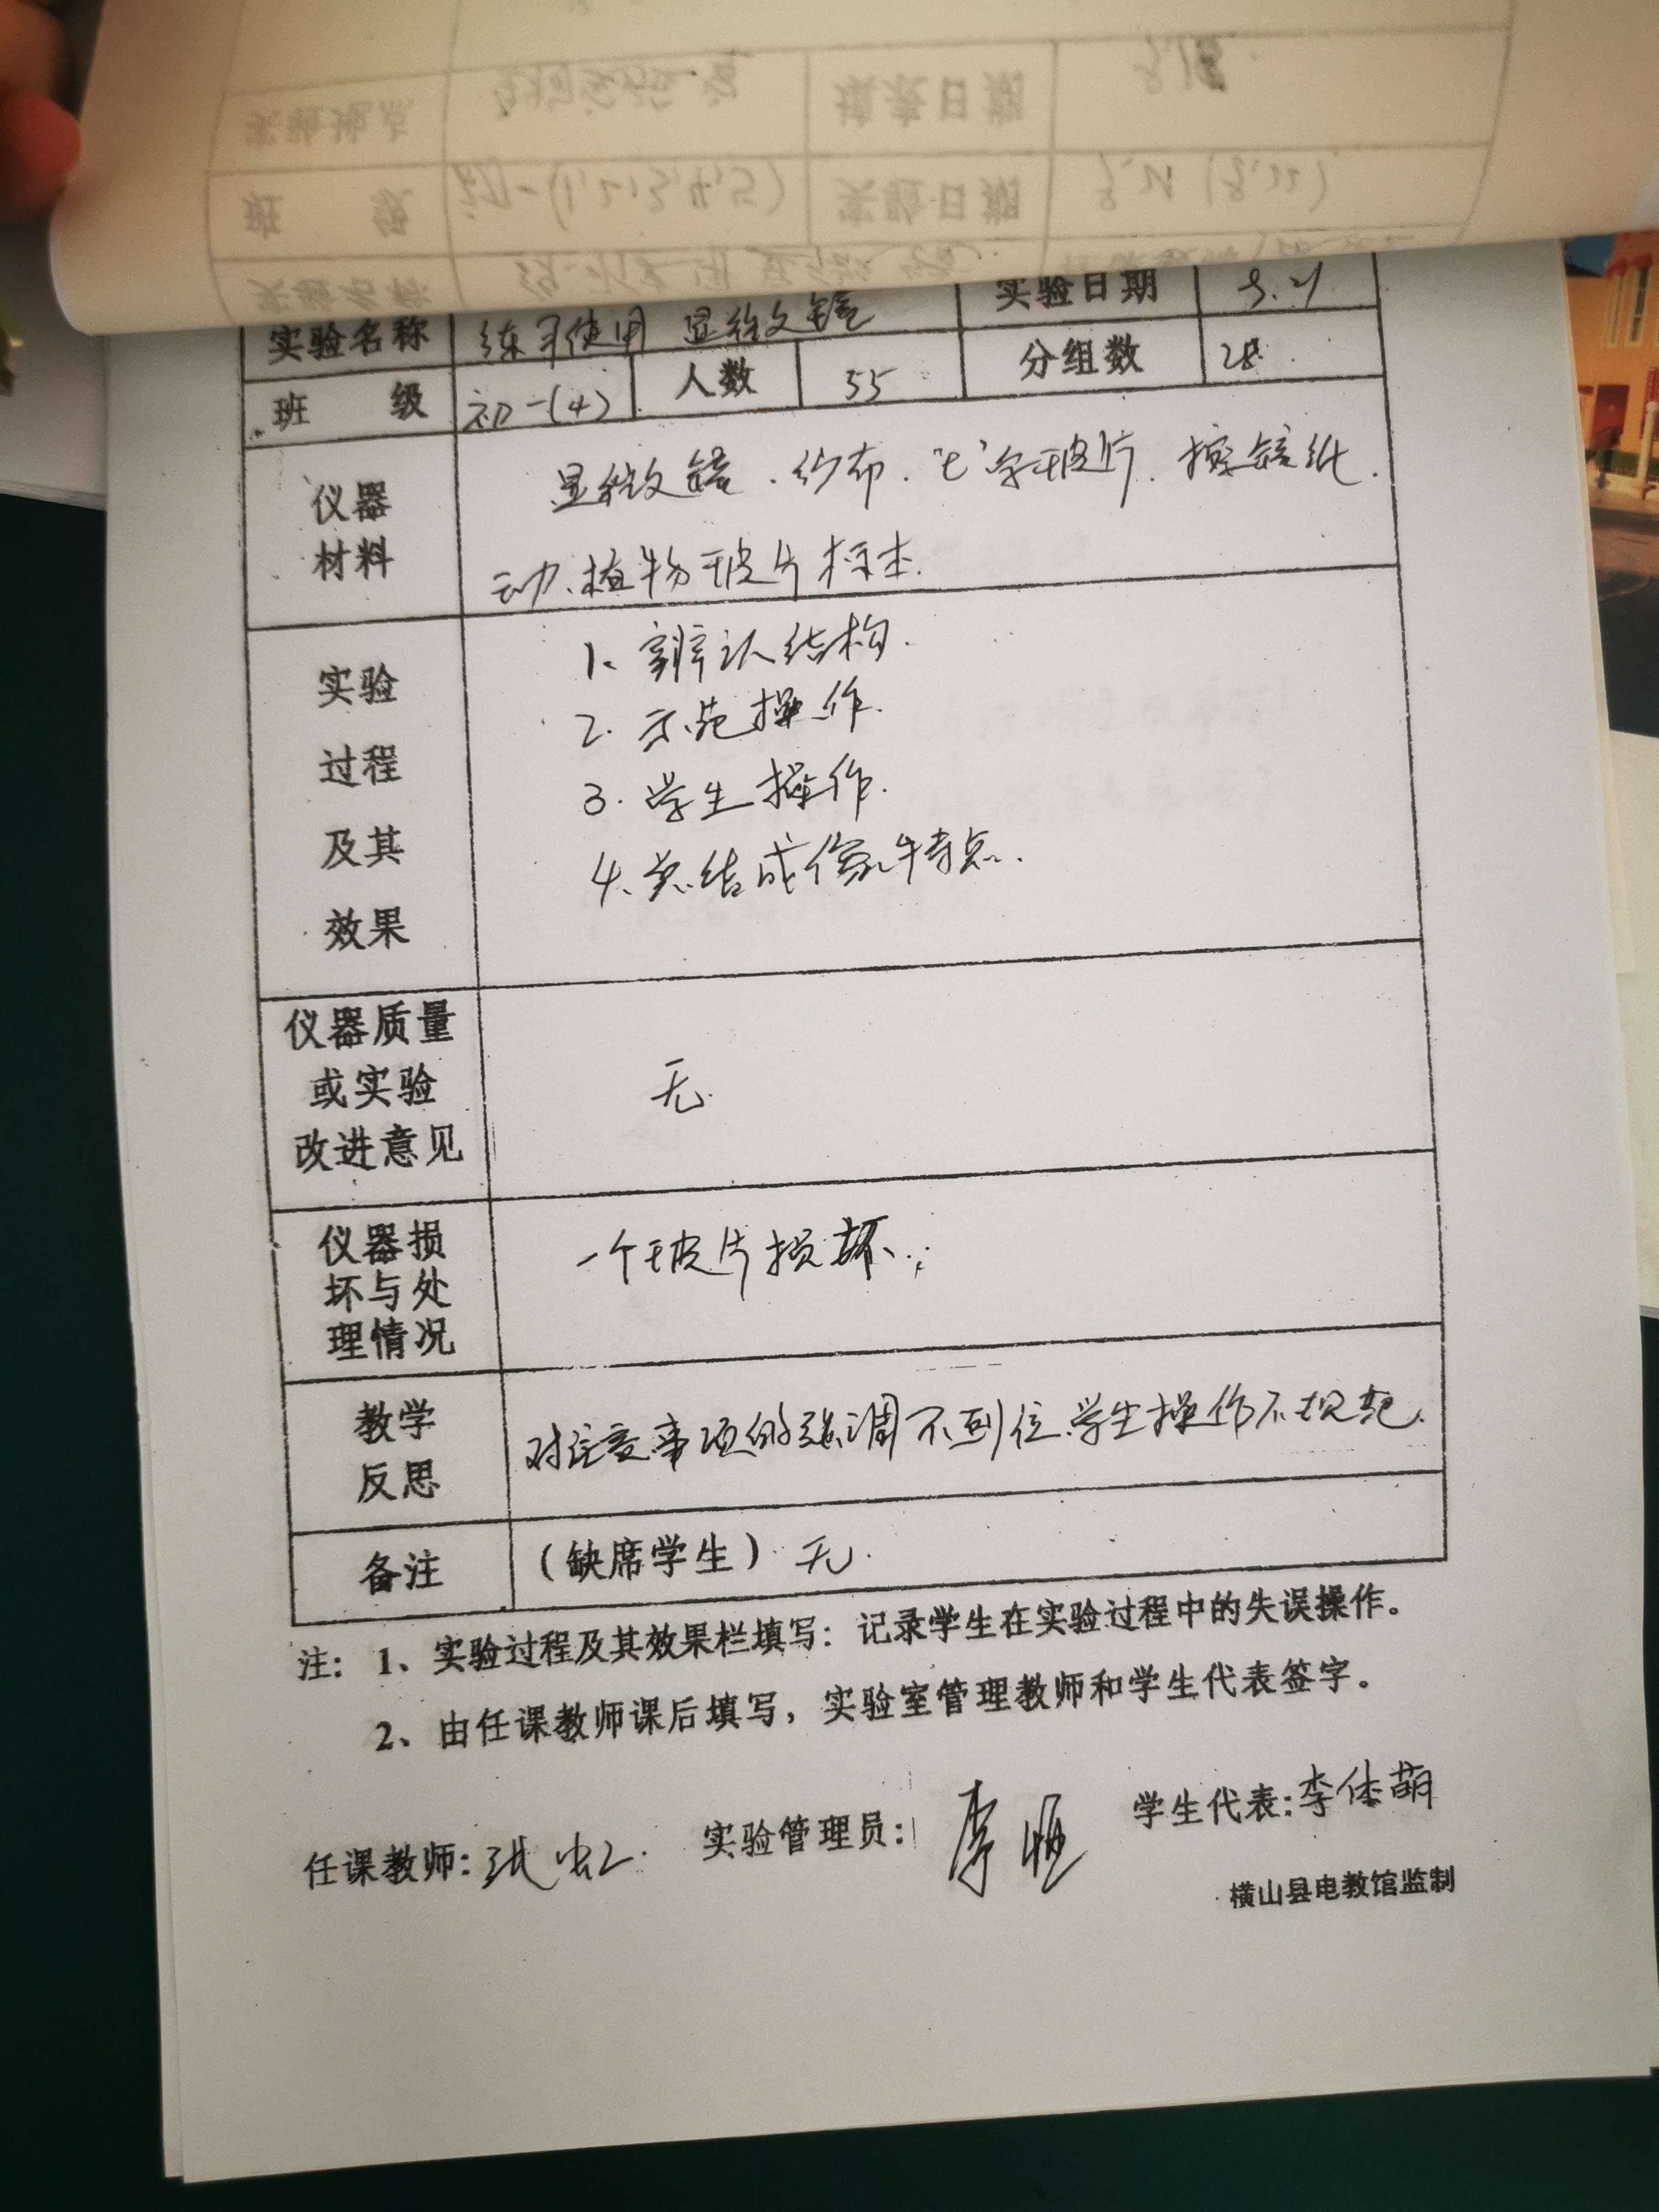 实验名称 练习使用显微镜 实验日期 9.21
班 级 初一(4) 人数 55 分组数 28
仪器材料 显微镜、纱布、"e"字玻片、擦镜纸、
动、植物玻片标本.
实验过程及其效果
1、辨认结构.
2. 示范操作.
3. 学生操作.
4、总结成像特点.
仪器质量或实验改进意见 无.
仪器损坏与处理情况 一个玻片损坏.
教学反思 对注意事项的强调不到位、学生操作不规范.
备注 (缺席学生) 无.
注: 1、实验过程及其效果栏填写:记录学生在实验过程中的失误操作。
2、由任课教师课后填写,实验室管理教师和学生代表签字。
任课教师: 张 实验管理员: 李 学生代表: 李佳萌
横山县电教馆监制